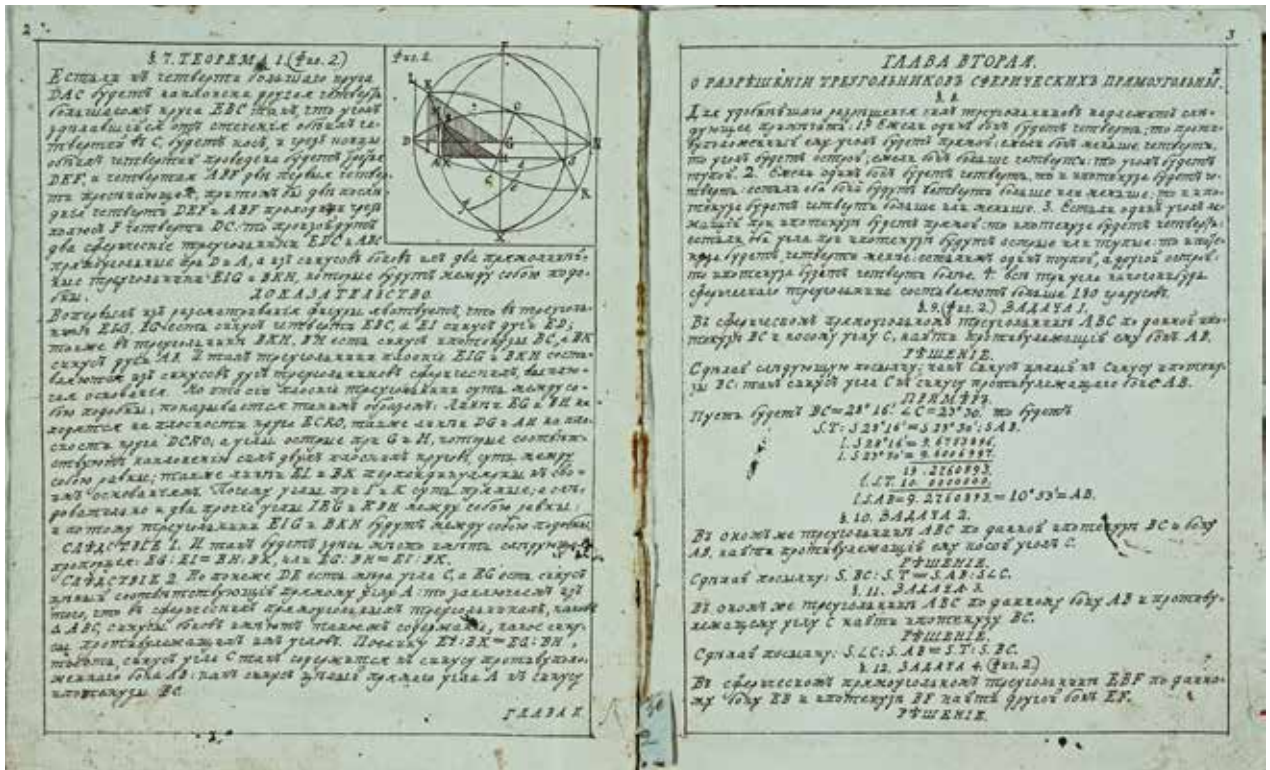 2
§. 7. ТЕОРЕМА 1. (Фиг. 2)
Фиг. 2.
Естьли къ четверти большаго круга
DAC будетъ наклонена другая четверть
большагожъ круга EBC такъ, что уголъ
здѣлавшійся отъ стеченія обѣихъ че-
твертей въ C, будетъ косъ, и чрезъ концы
обѣихъ четвертей проведена будетъ
DEF, и четвертая ABF двѣ первыя
притомъ бы двѣ послѣ-
днія четверти DEF и ABF проходили чрезъ
полюсъ F четверти DC: то произойдутъ
два сферическіе треугольники EDC и ABC
прямоугольные при D и A, а изъ синусовъ боковъ ихъ два прямолиней-
ные треугольники EIG и BKH, которые будутъ между собою подо-
бны.
ДОКАЗАТЕЛЬСТВО.
Вопервыхъ изъ разсматриванія фигуры явствуетъ, что въ треуголь-
никѣ EIG, EG есть синусъ четверти EBC, а EI синусъ дуги ED;
также въ треугольникѣ BKH, BH есть синусъ ипотенузы BC, а BK
синусъ дуги AB. И такъ треугольники плоскіе EIG и BKH соста-
вляются изъ синусовъ дугъ треугольниковъ сферическихъ,
основанія. Но что сіи плоскіе треугольники суть между со-
бою подобны, показывается такимъ образомъ: линіи EG и BH на-
ходятся на плоскости круга ECRO, также линіи DG и AH на пло-
скости круга DCNO, а углы острые при G и H, которые соотвѣт-
ствуютъ наклоненію сихъ двухъ плоскихъ круговъ, суть между
собою равны; также линіи EI и BK перпендикулярны къ сво-
имъ основаніямъ. Посему углы при I и K суть прямые; слѣ-
довательно и два прочіе углы IEG и KBH между собою равны;
и потому треугольники EIG и BKH будутъ между собою подобны.
СЛѢДСТВІЕ 1. И такъ будетъ здѣсь мѣсто имѣть слѣдующая
пропорція: EG : EI = BH : BK, или EG : BH = EI : BK.
СЛѢДСТВІЕ 2. Но понеже DE есть мѣра угла C, а EG есть синусъ
цѣлый соотвѣтствующій прямому углу A: то заключаемъ изъ
того, что въ сферическихъ прямоугольныхъ треугольникахъ, каковъ
Δ ABC, синусы боковъ имѣютъ такоежъ содержаніе, какое сину-
сы противулежащихъ имъ угловъ. Поелику EI : BK = EG : BH,
то есть, синусъ угла C такъ содержится къ синусу противуполо-
женнаго бока AB: какъ синусъ цѣлый прямаго угла A къ синусу
ипотенузы BC.
ГЛАВА II.
3
ГЛАВА ВТОРАЯ.
О РАЗРѢШЕНІИ ТРЕУГОЛЬНИКОВЪ СФЕРИЧЕСКИХЪ ПРЯМОУГОЛЬНЫХЪ.
§. 8.
Для удобнѣйшаго разрѣшенія сихъ треугольниковъ надлежитъ слѣ-
дующее примѣчать: 1. Ежели одинъ бокъ будетъ четверть, то проти-
вуположенный ему уголъ будетъ прямой; ежели бокъ меньше четверти,
то уголъ будетъ острой, ежели бокъ больше четверти: то уголъ будетъ
тупой. 2. Ежели одинъ бокъ будетъ четверть, то и ипотенуза будетъ че-
тверть: естьли оба бока будутъ четверти больше или меньше; то и ипо-
тенуза будетъ четверти больше или меньше. 3. Естьли одинъ уголъ ле-
жащій при ипотенузѣ будетъ прямой: то ипотенуза будетъ четверть:
естьли оба угла при ипотенузѣ будутъ острые или тупые: то ипоте-
нуза будетъ четверти менѣе: естьлижъ одинъ тупой, а другой острой:
то ипотенуза будетъ четверти болѣе. 4. Всѣ три угла какогонибудь
сферическаго треугольника составляютъ больше 180 градусовъ.
§. 9. (Фиг. 2.) ЗАДАЧА 1.
Въ сферическомъ прямоугольномъ треугольникѣ ABC по данной ипо-
тенузѣ BC и косому углу C, найти противулежащій ему бокъ AB.
РѢШЕНІЕ.
Сдѣлай слѣдующую посылку: какъ синусъ цѣлый къ синусу ипотену-
зы BC: такъ синусъ угла C къ синусу противулежащаго бока AB.
ПРИМѢРЪ.
Пусть будетъ BC = 28° 16'. ∠C = 23° 30'. то будетъ
S.T : S 28° 16' = S 23° 30' : S AB.
l. S 28° 16' = 9. 6753896.
l. S 23° 30' = 9. 6006997.
19. 2760893.
l. S.T. 10. 0000000.
l. S AB = 9. 2760893. = 10° 53' = AB.
§. 10. ЗАДАЧА 2.
Въ ономъ же треугольникѣ ABC по данной ипотенузѣ BC и боку
AB, найти противулежащій ему косой уголъ C.
РѢШЕНІЕ.
Сдѣлай посылку: S. BC : S. T = S. AB : S. ∠C.
§. 11. ЗАДАЧА 3.
Въ ономъ же треугольникѣ ABC по данному боку AB и противу-
лежащему углу C найти ипотенузу BC.
РѢШЕНІЕ.
Сдѣлай посылку: S. ∠C : S. AB = S. T : S. BC.
§. 12. ЗАДАЧА 4. (Фиг. 2)
Въ сферическомъ прямоугольномъ треугольникѣ EBF по данно-
му боку EB и ипотенузѣ BF найти другой бокъ EF.
РѢШЕНІЕ.